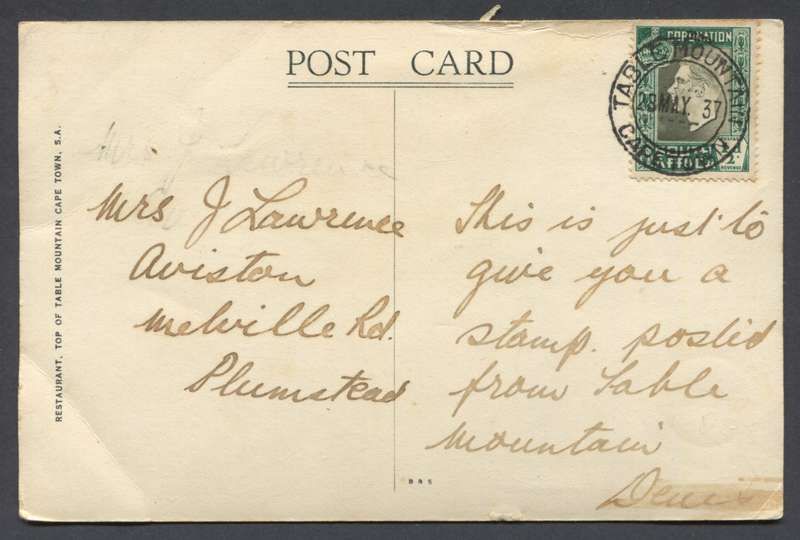 POST CARD
CORONATION
TABLE MOUNTAIN
28 MAY. 37
CAPE TOWN
REVENUE
RESTAURANT, TOP OF TABLE MOUNTAIN CAPE TOWN, S.A.
Mrs J Lawrence
Mrs J Lawrence
Aviston
Melville Rd.
Plumstead
This is just to
give you a
stamp. posted
from Table
Mountain